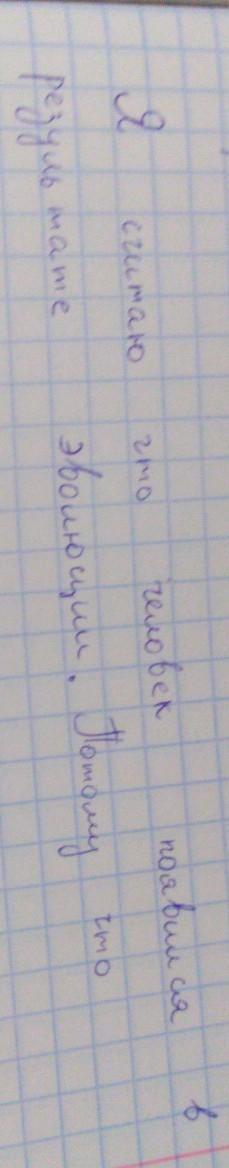 Я считаю что человек появился в
результате эволюции. Потому что